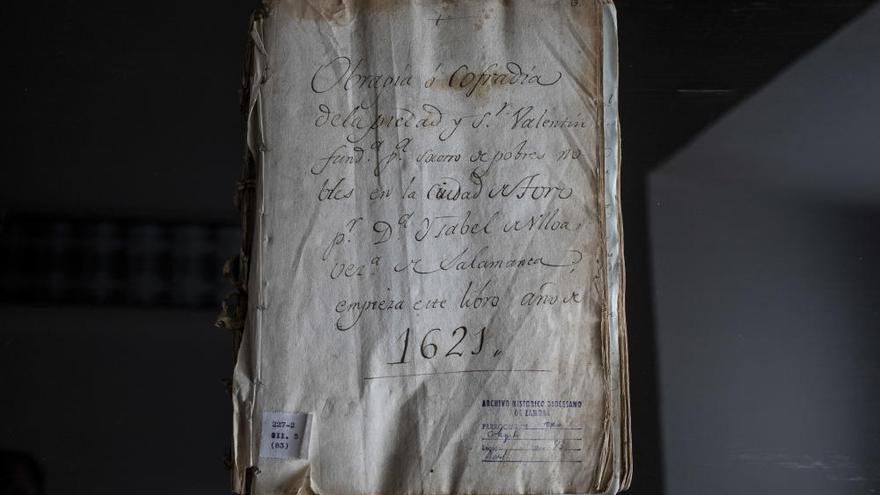 Obrapia ó Cofradía
de la piedad y Sr. Valentín
fund.ª pª. socorro de pobres no
bles en la ciudad de Toro
pr. Dª Ysabel de Ulloa,
vezª de Salamanca,
empieza este libro año de
1621,,
227-2
011. 5
(83)
ARCHIVO HISTORICO DIOCESANO
DE ZAMORA
PARROQUIA DE